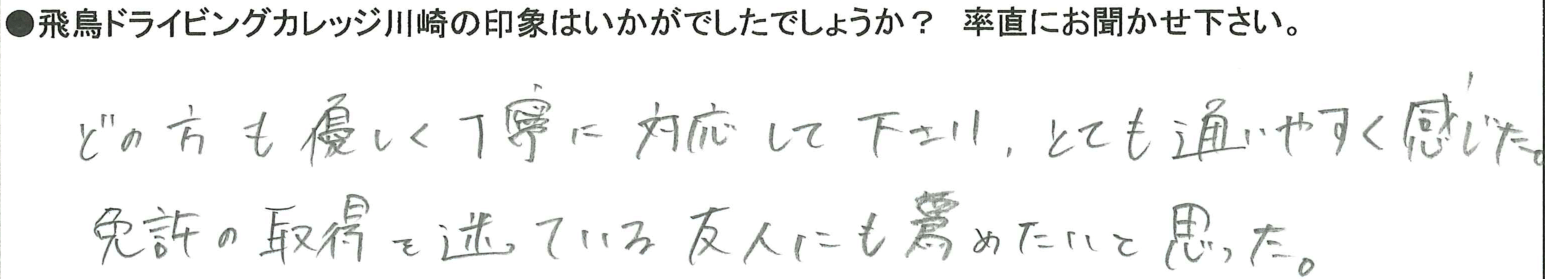 ●飛鳥ドライビングカレッジ川崎の印象はいかがでしたでしょうか？ 率直にお聞かせ下さい。
どの方も優しく丁寧に対応して下さり、とても通いやすく感じた。
免許の取得を迷っている友人にも薦めたいと思った。